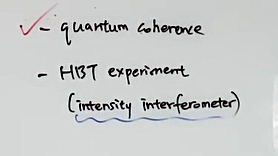 - quantum coherence
- HBT experiment
(intensity interferometer)